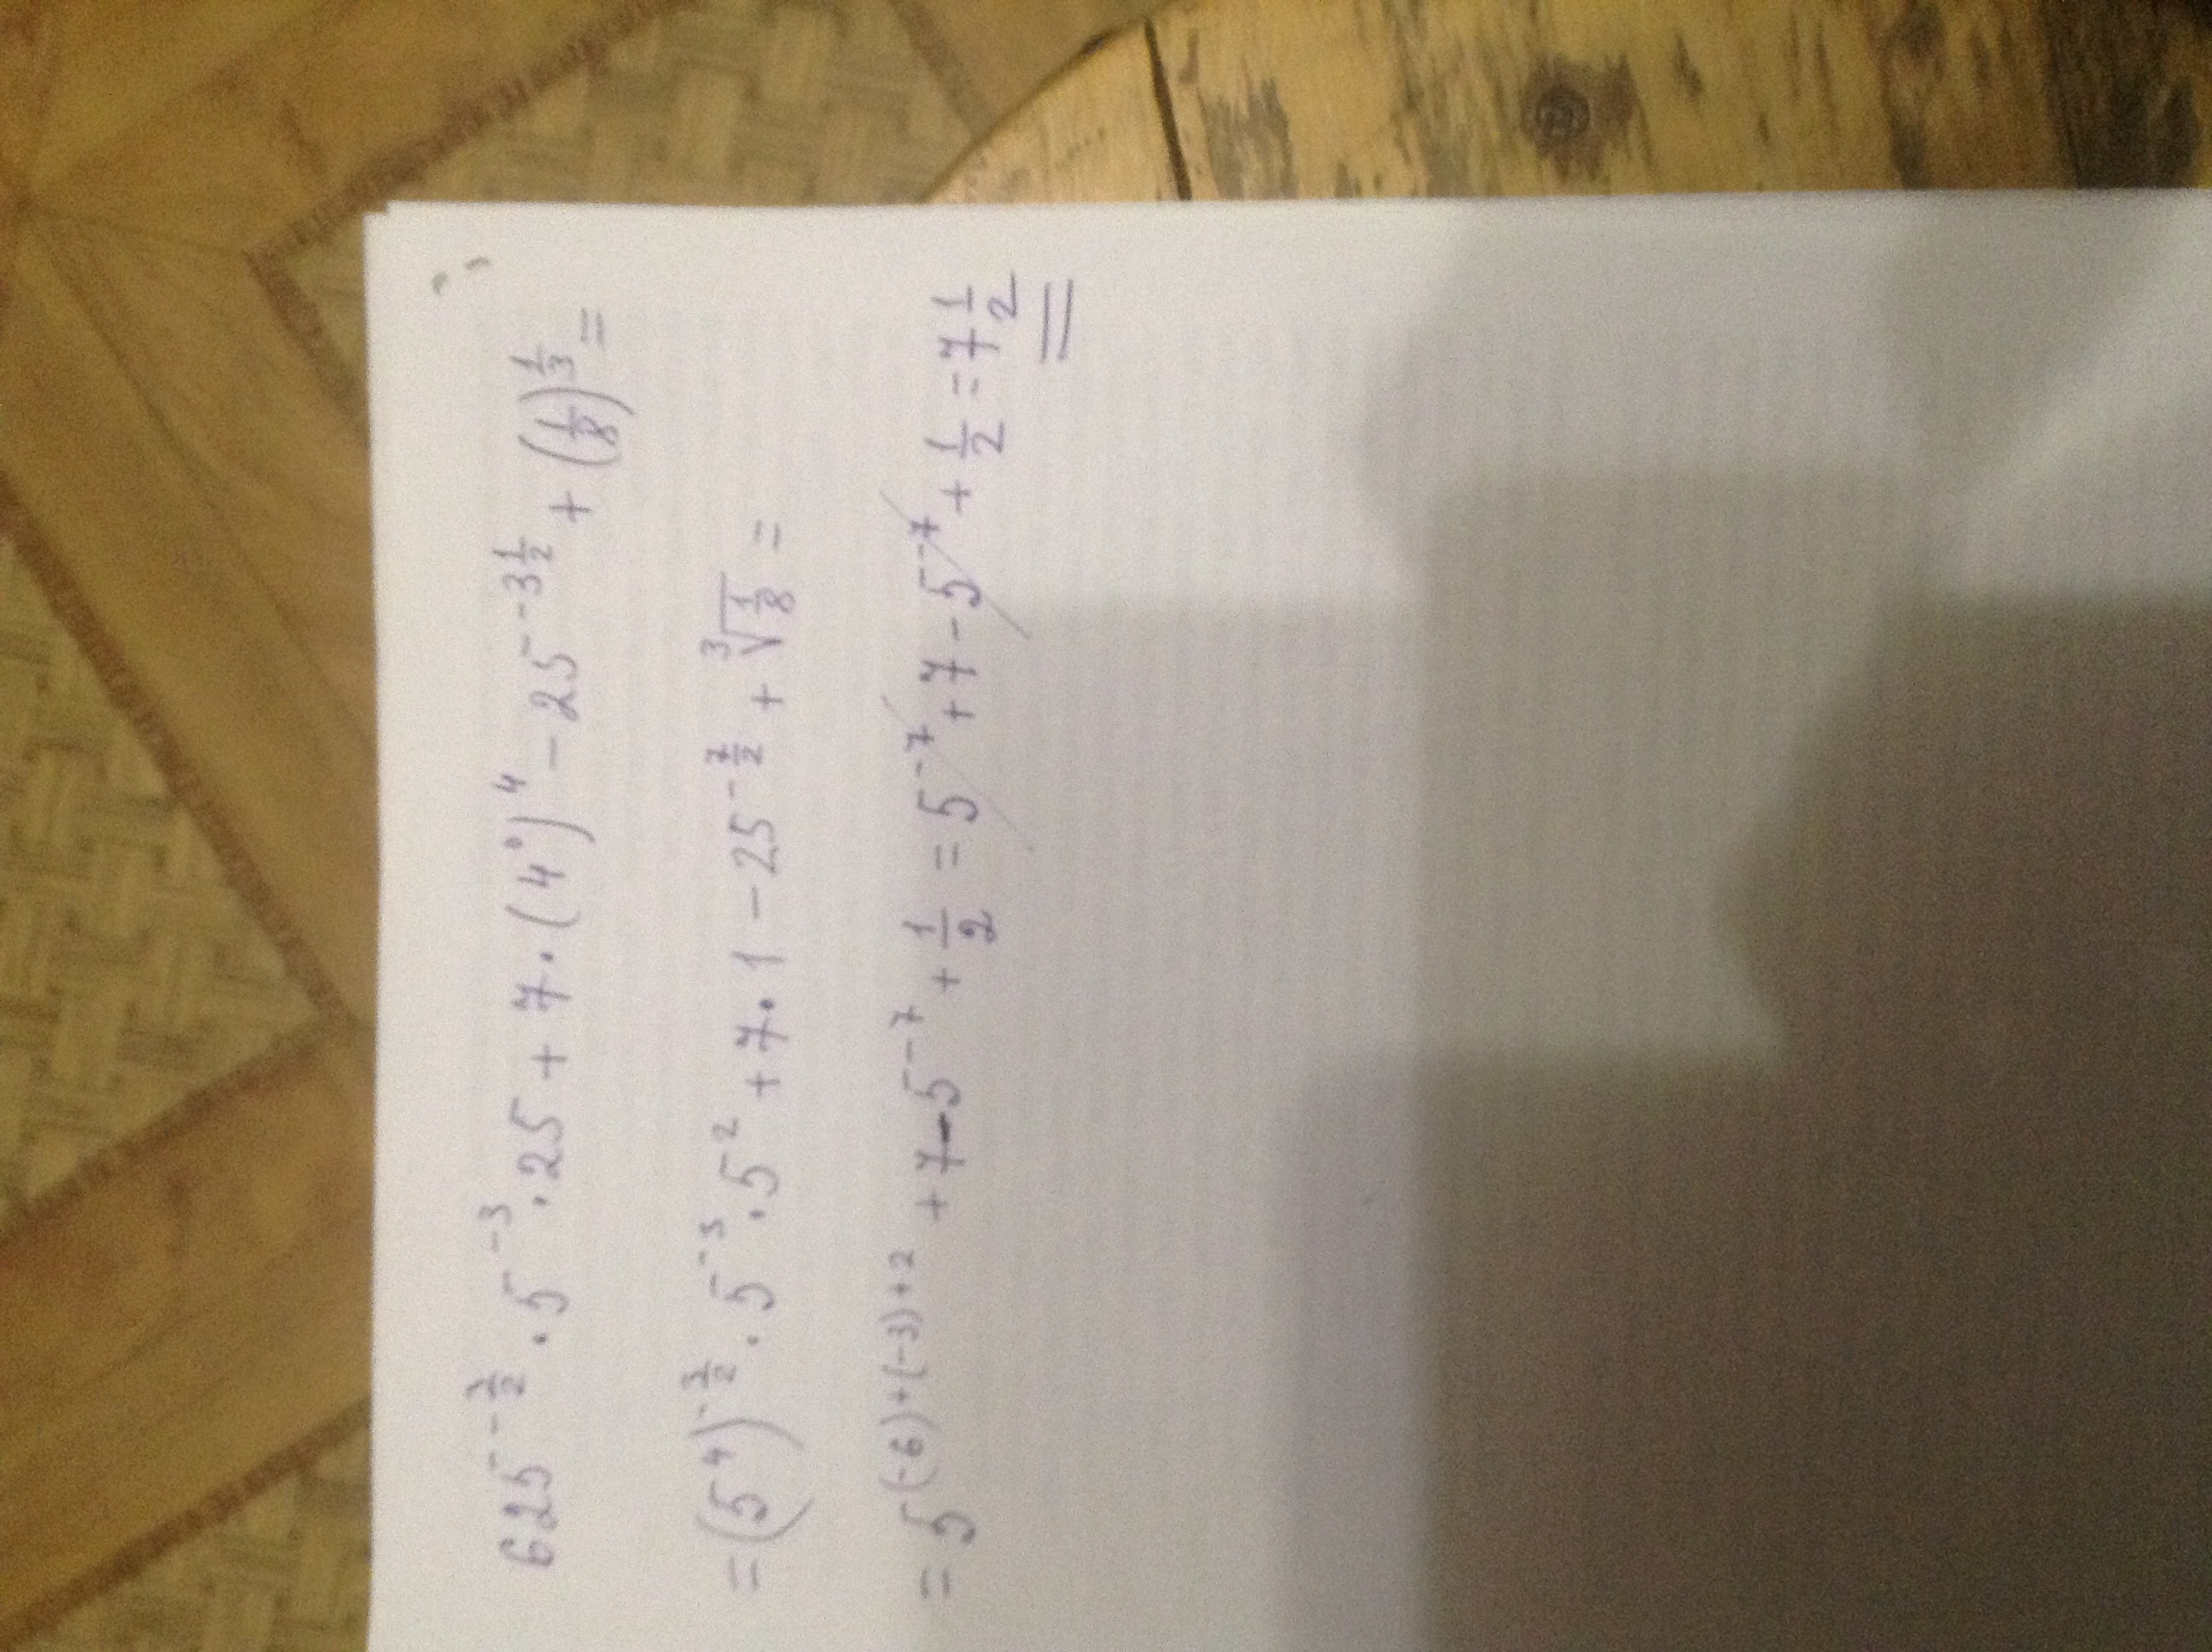 625^{-\frac{3}{2}} · 5^{-3} · 25 + 7 · (4^0)^4 - 25^{-3\frac{1}{2}} + (\frac{1}{8})^{\frac{1}{3}} =
= (5^4)^{-\frac{3}{2}} · 5^{-3} · 5^2 + 7 · 1 - 25^{-\frac{7}{2}} + \sqrt[3]{\frac{1}{8}} =
= 5^{(-6)+(-3)+2} + 7 - 5^{-7} + \frac{1}{2} = 5^{-7} + 7 - 5^{-7} + \frac{1}{2} = 7\frac{1}{2}